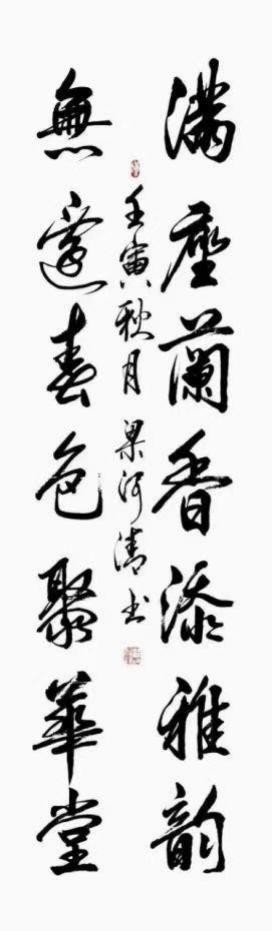 滿座蘭香添雅韵
無邊春色聚華堂
壬寅秋月梁河清书